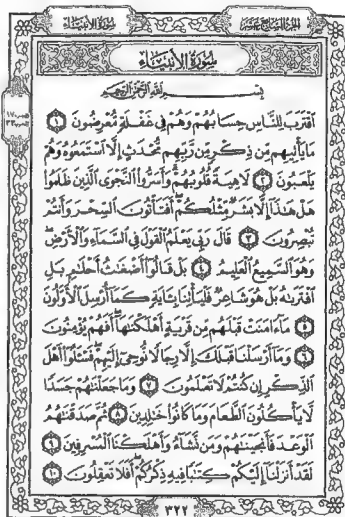 سُورَةُ الأَنبِيَاءِ
الجُزْءُ السَّابِعَ عَشَرَ
سُورَةُ الأَنبِيَاءِ
بِسْمِ ٱللَّهِ ٱلرَّحْمَٰنِ ٱلرَّحِيمِ
ٱقْتَرَبَ لِلنَّاسِ حِسَابُهُمْ وَهُمْ فِى غَفْلَةٍ مُّعْرِضُونَ ١
مَا يَأْتِيهِم مِّن ذِكْرٍ مِّن رَّبِّهِم مُّحْدَثٍ إِلَّا ٱسْتَمَعُوهُ وَهُمْ
يَلْعَبُونَ ٢ لَاهِيَةً قُلُوبُهُمْ وَأَسَرُّوا۟ ٱلنَّجْوَى ٱلَّذِينَ ظَلَمُوا۟
هَلْ هَٰذَآ إِلَّا بَشَرٌ مِّثْلُكُمْ أَفَتَأْتُونَ ٱلسِّحْرَ وَأَنتُمْ
تُبْصِرُونَ ٣ قَالَ رَبِّى يَعْلَمُ ٱلْقَوْلَ فِى ٱلسَّمَآءِ وَٱلْأَرْضِ
وَهُوَ ٱلسَّمِيعُ ٱلْعَلِيمُ ٤ بَلْ قَالُوٓا۟ أَضْغَٰثُ أَحْلَٰمٍ بَلِ
ٱفْتَرَىٰهُ بَلْ هُوَ شَاعِرٌ فَلْيَأْتِنَا بِـَٔايَةٍ كَمَآ أُرْسِلَ ٱلْأَوَّلُونَ
٥ مَآ ءَامَنَتْ قَبْلَهُم مِّن قَرْيَةٍ أَهْلَكْنَٰهَآ أَفَهُمْ يُؤْمِنُونَ
٦ وَمَآ أَرْسَلْنَا قَبْلَكَ إِلَّا رِجَالًا نُّوحِىٓ إِلَيْهِمْ فَسْـَٔلُوٓا۟ أَهْلَ
ٱلذِّكْرِ إِن كُنتُمْ لَا تَعْلَمُونَ ٧ وَمَا جَعَلْنَٰهُمْ جَسَدًا
لَّا يَأْكُلُونَ ٱلطَّعَامَ وَمَا كَانُوا۟ خَٰلِدِينَ ٨ ثُمَّ صَدَقْنَٰهُمُ
ٱلْوَعْدَ فَأَنجَيْنَٰهُمْ وَمَن نَّشَآءُ وَأَهْلَكْنَا ٱلْمُسْرِفِينَ ٩
لَقَدْ أَنزَلْنَآ إِلَيْكُمْ كِتَٰبًا فِيهِ ذِكْرُكُمْ أَفَلَا تَعْقِلُونَ ١٠
٣٢٢